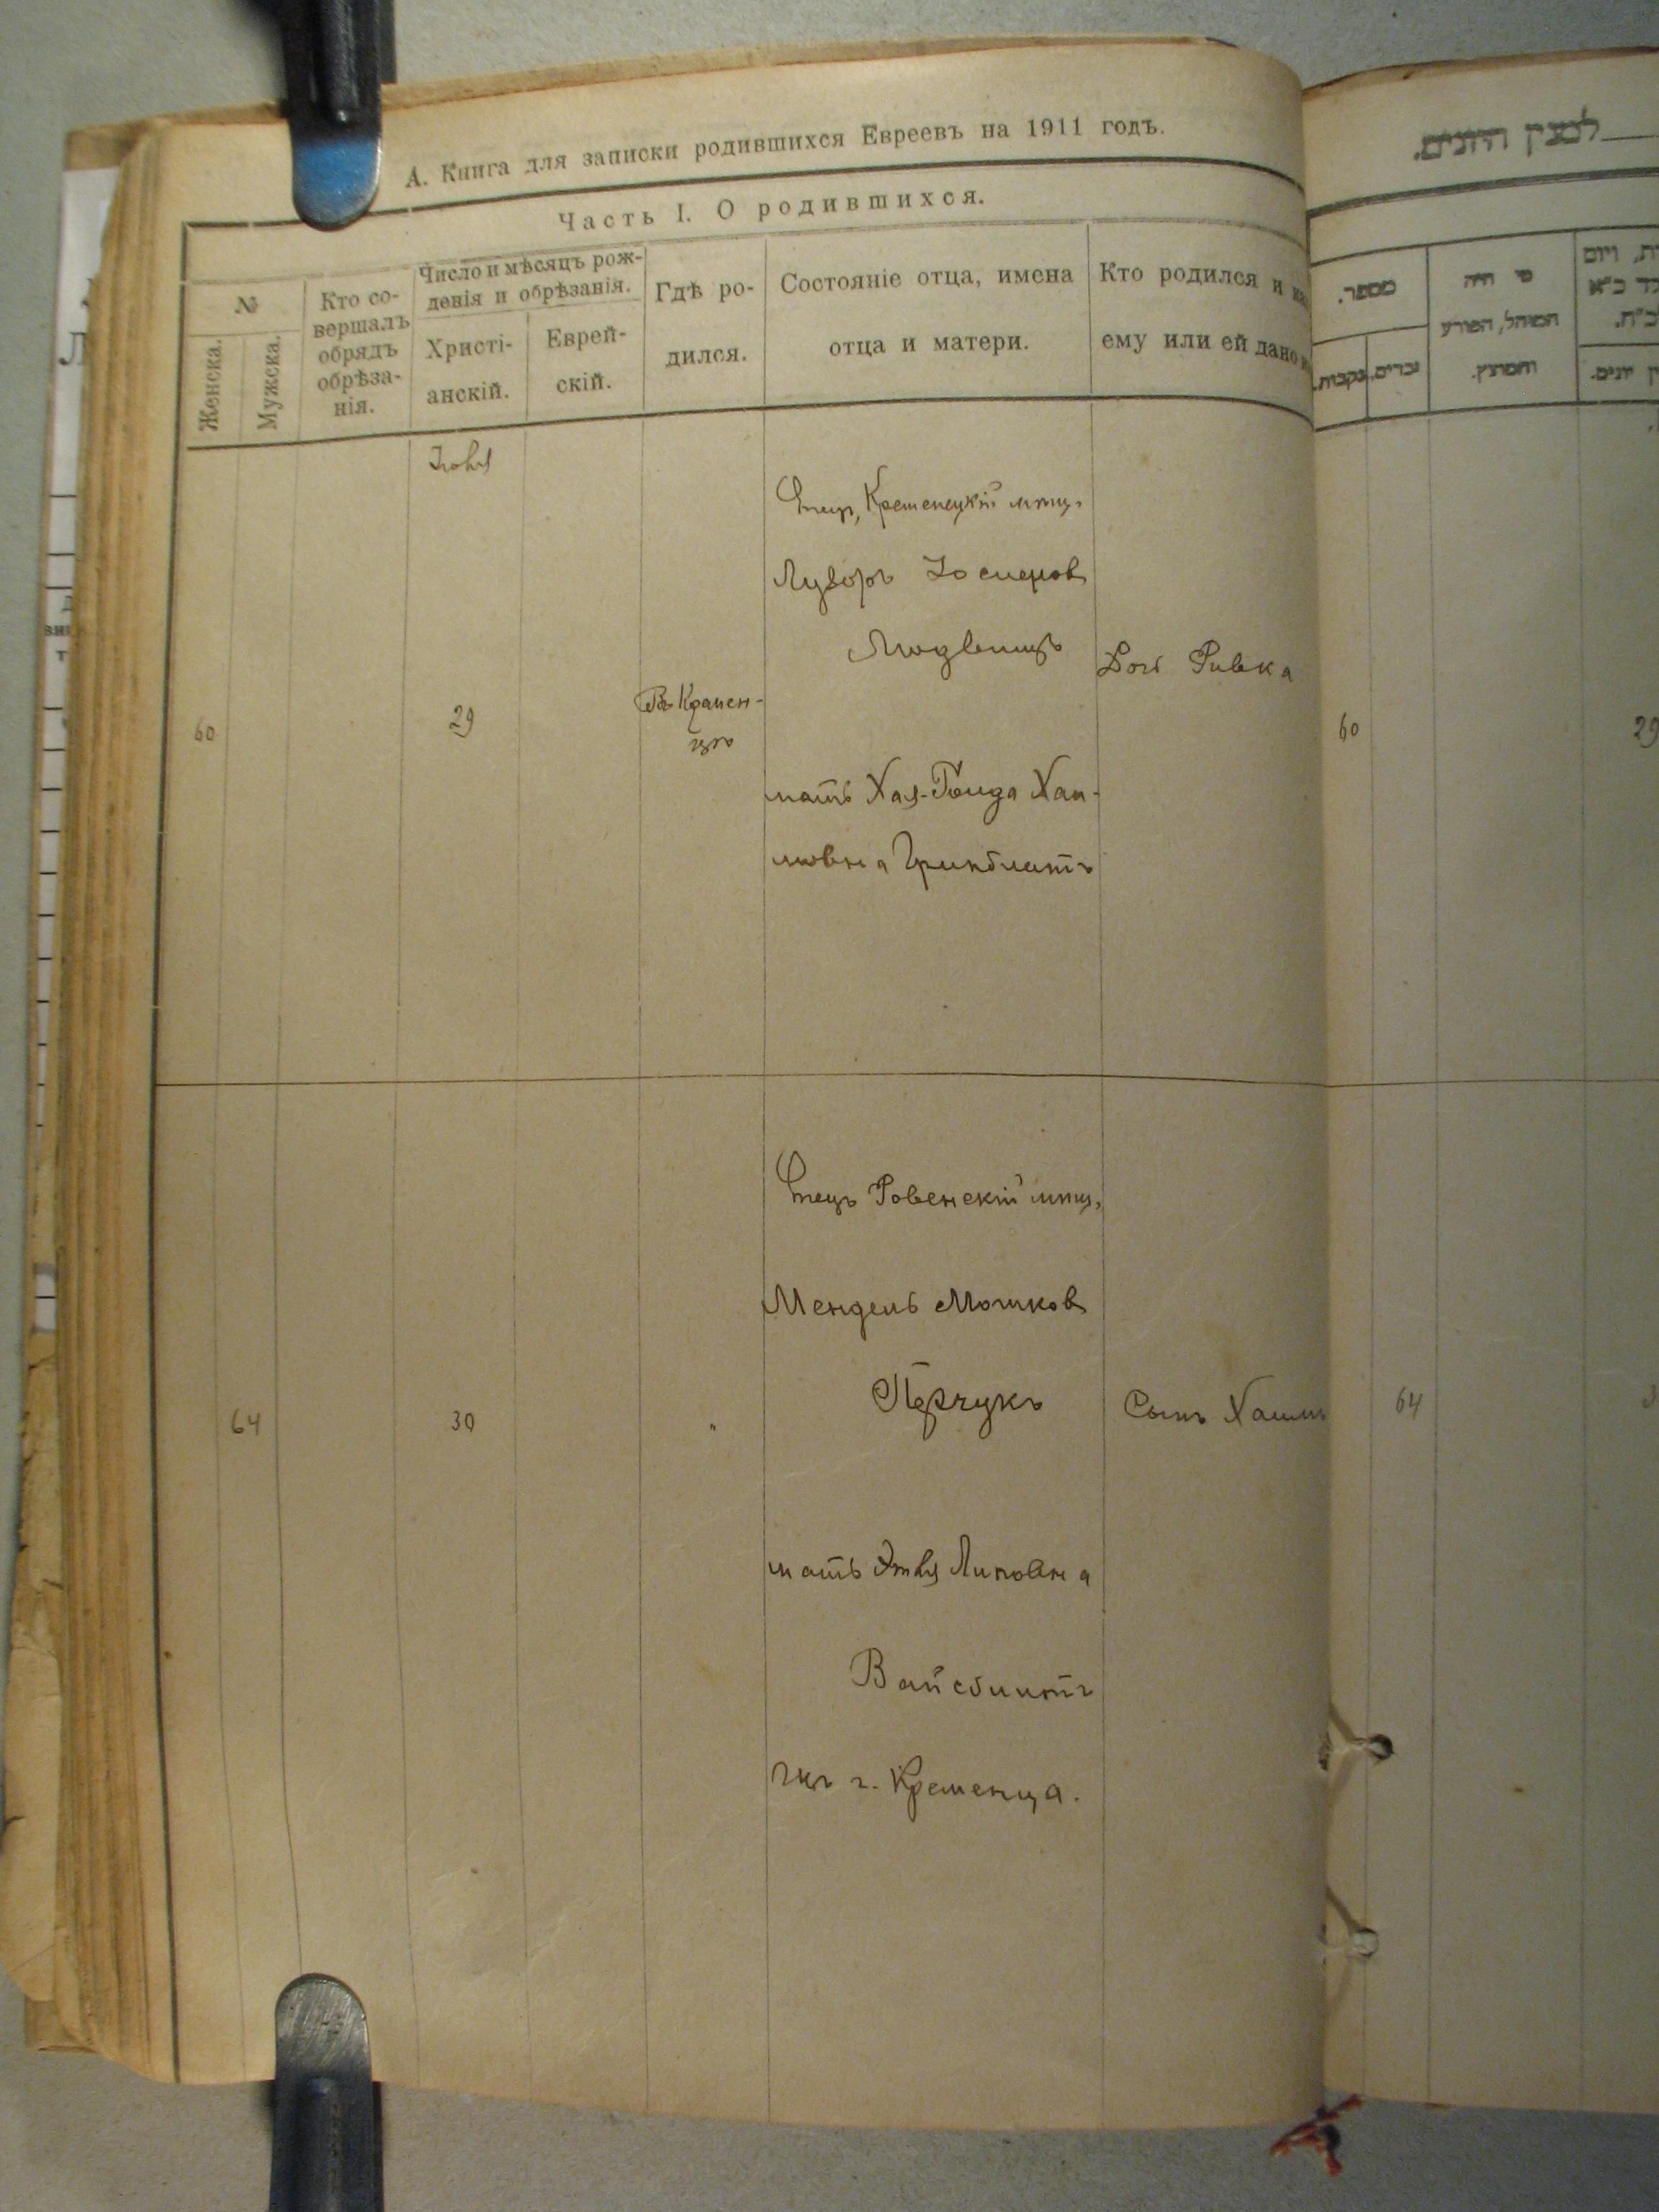 А. Книга для записки родившихся Евреевъ на 1911 годъ.
Часть I. О родившихся.
№
Женска.
Мужска.
Кто со-
вершалъ
обрядъ
обрѣза-
нія.
Число и мѣсяцъ рож-
денія и обрѣзанія.
Христі-
анскій.
Еврей-
скій.
Гдѣ ро-
дился.
Состояніе отца, имена
отца и матери.
Кто родился и
ему или ей дано
60
29
Въ Кремен-
цѣ
Отецъ, Кременецкій мѣщ.
Лузоръ Іосифовъ
мать Хая- Хаи-
мовна Гринблатъ
Дочь Ривка
64
30
"
Отецъ Ровенскій мѣщ,
Мендель Мошковъ
Перчукъ
мать Этля Липовна
Вайсблатъ
г. Кременца.
Сынъ Хаимъ
לבנין היונים.
מספר.
נקבות.
זכרים.
מי היה
המוהל, הפורע
והמוצץ.
60
29
64